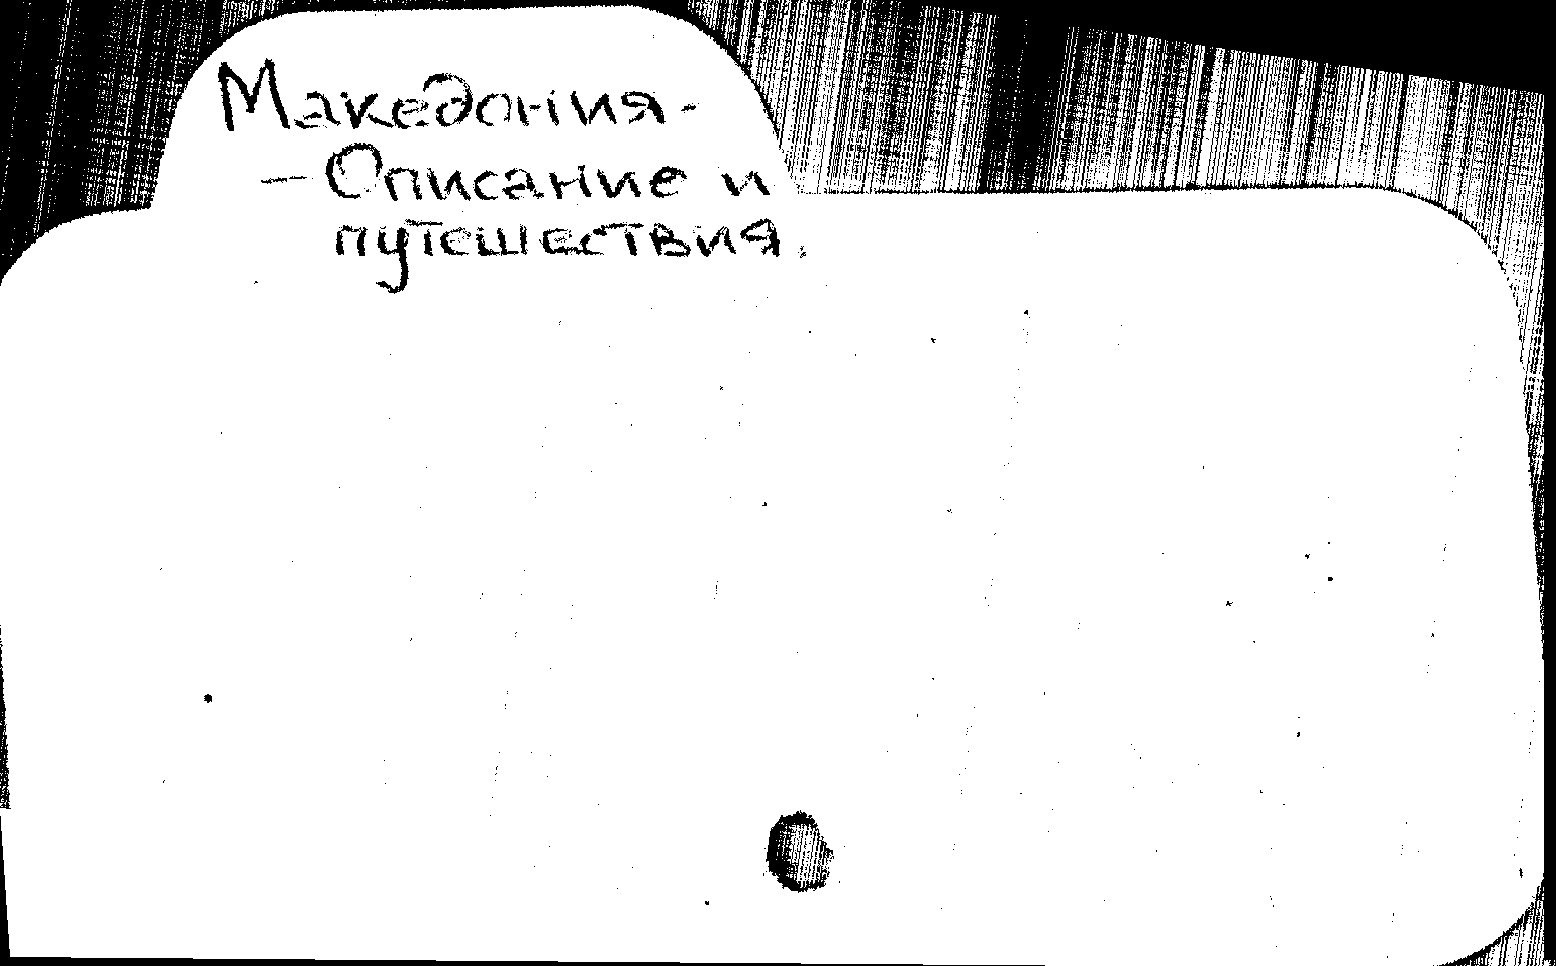 Македония-
— Описание и
путешествия.